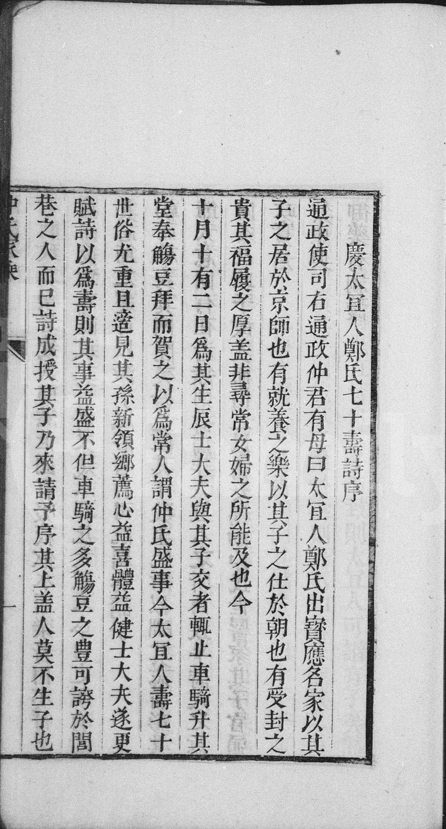 慶太宜人鄭氏七十壽詩序
通政使司右通政仲君有母曰太宜人鄭氏出寶應名家以其
子之居於京師也有就養之樂以其子之仕於朝也有受封之
貴其福履之厚盖非尋常女婦之所能及也今
十月十有二日為其生辰士大夫與其子交者輒止車騎升其
堂奉觴豆拜而賀之以為常人謂仲氏盛事今太宜人壽七十
世俗尤重且適見其孫新領鄉薦心益喜體益健士大夫遂更
賦詩以為壽則其事益盛不但車騎之多觴豆之豊可誇於閭
巷之人而已詩成授其子乃來請予序其上盖人莫不生子也
仲氏家乘
一